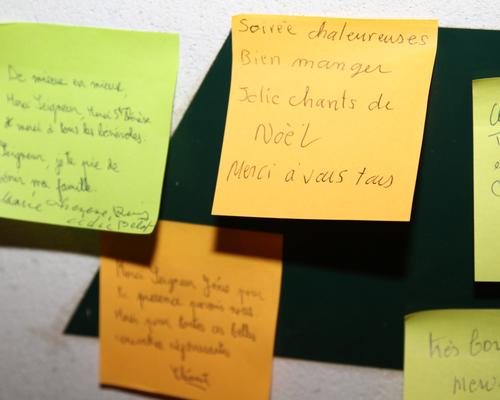 De mieux en mieux,
Merci Seigneur, Merci St
et merci à tous les bénévoles.
Seigneur, je te prie de
ma famille.
Marie
Soirée chaleureuses
Bien manger
Jolie chants de
Noël
Merci à vous tous
Merci Seigneur Jésus pour
ta présence parmi nous
Merci pour toutes ces belles
rencontres
très bon
merci